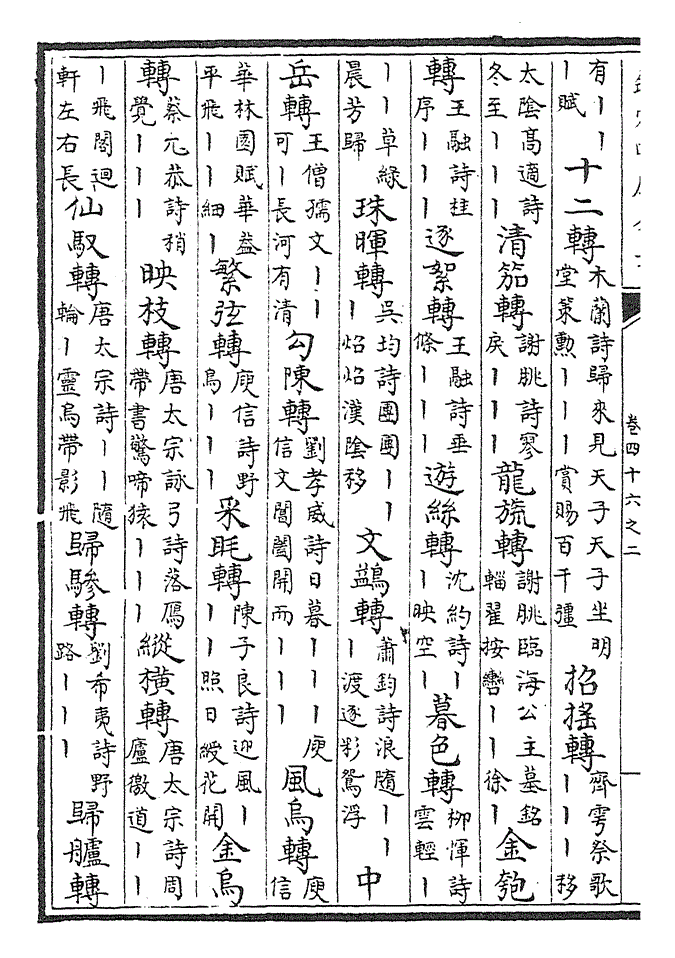 卷四十六之二
有丨丨丨賦十二轉木蘭詩歸來見天子天子坐明堂策勲丨丨丨賞賜百千彊招搖轉齊雩祭歌丨丨丨移
太陰高適詩冬至丨丨丨清笳轉謝朓詩寥戾丨丨丨龍旒轉謝朓臨海公主墓銘輜翟按轡丨丨徐丨金匏
轉王融詩桂序丨丨丨逐絮轉王融詩垂條丨丨丨遊絲轉沈約詩丨丨映空丨暮色轉柳惲詩雲輕丨
丨丨草緑晨芳歸珠暉轉吳均詩團團丨丨丨焰焰漢陰移文鷁轉蕭鈞詩浪隨丨丨丨丨渡逐彩鴛浮中
岳轉王僧孺文丨丨可丨長河有清勾陳轉劉孝威詩日暮丨丨丨庾信文閶闔開而丨丨丨風烏轉庾信
華林園賦華葢平飛丨丨細丨繁弦轉庾信詩野烏丨丨丨采眊轉陳子良詩迎風丨丨丨照日綬花開金烏
轉蔡元恭詩稍覺丨丨丨映枝轉唐太宗詠弓詩落鴈帶書驚啼猿丨丨丨縱横轉唐太宗詩周廬徼道丨
丨飛閣迴軒左右長仙馭轉唐太宗詩丨丨隨輪丨靈烏帶影飛歸驂轉劉希夷詩野路丨丨丨歸艫轉